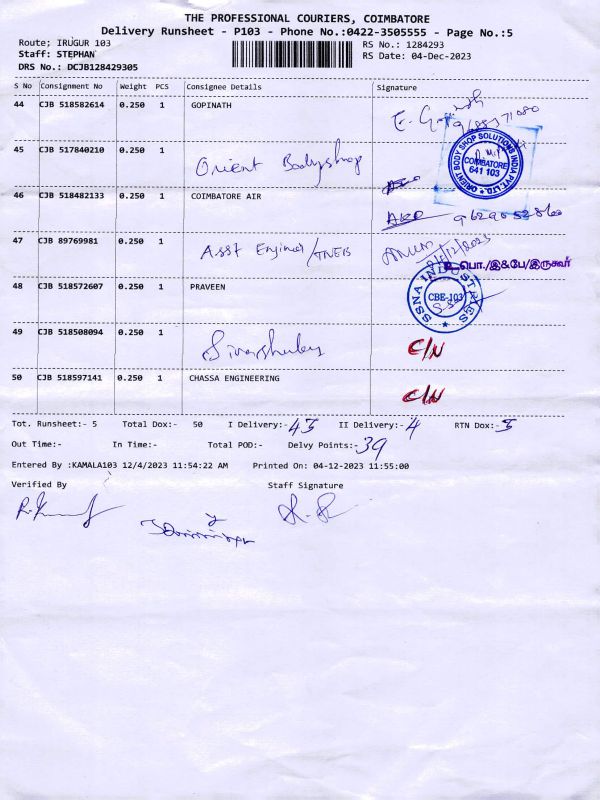 THE PROFESSIONAL COURIERS, COIMBATORE
Delivery Runsheet - P103 - Phone No.:0422-3505555 - Page No.:5
Route; IRUGUR 103
Staff: STEPHAN
DRS No.: DCJB128429305
RS No.: 1284293
RS Date: 04-Dec-2023
S No Consignment No Weight PCS Consignee Details Signature
44 CJB 518582614 0.250 1 GOPINATH
45 CJB 517840210 0.250 1 Orient Bodyshop
ORIENT BODY SHOP SOLUTIONS INDIA PVT. LTD.
COIMBATORE
641 103
46 CJB 518482133 0.250 1 COIMBATORE AIR
47 CJB 89769981 0.250 1 Asst Engineer/TNEB
பொ./இ&பே/இருகூர்
48 CJB 518572607 0.250 1 PRAVEEN
SSNA INDUSTRIES
CBE-103
49 CJB 518508094 0.250 1 C/N
50 CJB 518597141 0.250 1 CHASSA ENGINEERING C/N
Tot. Runsheet:- 5 Total Dox:- 50 I Delivery:- 45 II Delivery:- 4 RTN Dox:- 5
Out Time:- In Time:- Total POD:- Delvy Points:- 39
Entered By :KAMALA103 12/4/2023 11:54:22 AM Printed On: 04-12-2023 11:55:00
Verified By Staff Signature